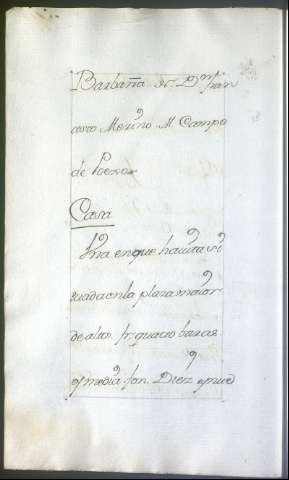 Barbaña de Dn fran
casco Merino M. Campo
de
Casa
Una en que havita Si
tuada en la plaza maior
de alto fr. quatro baras
y media fon. Diez y nue